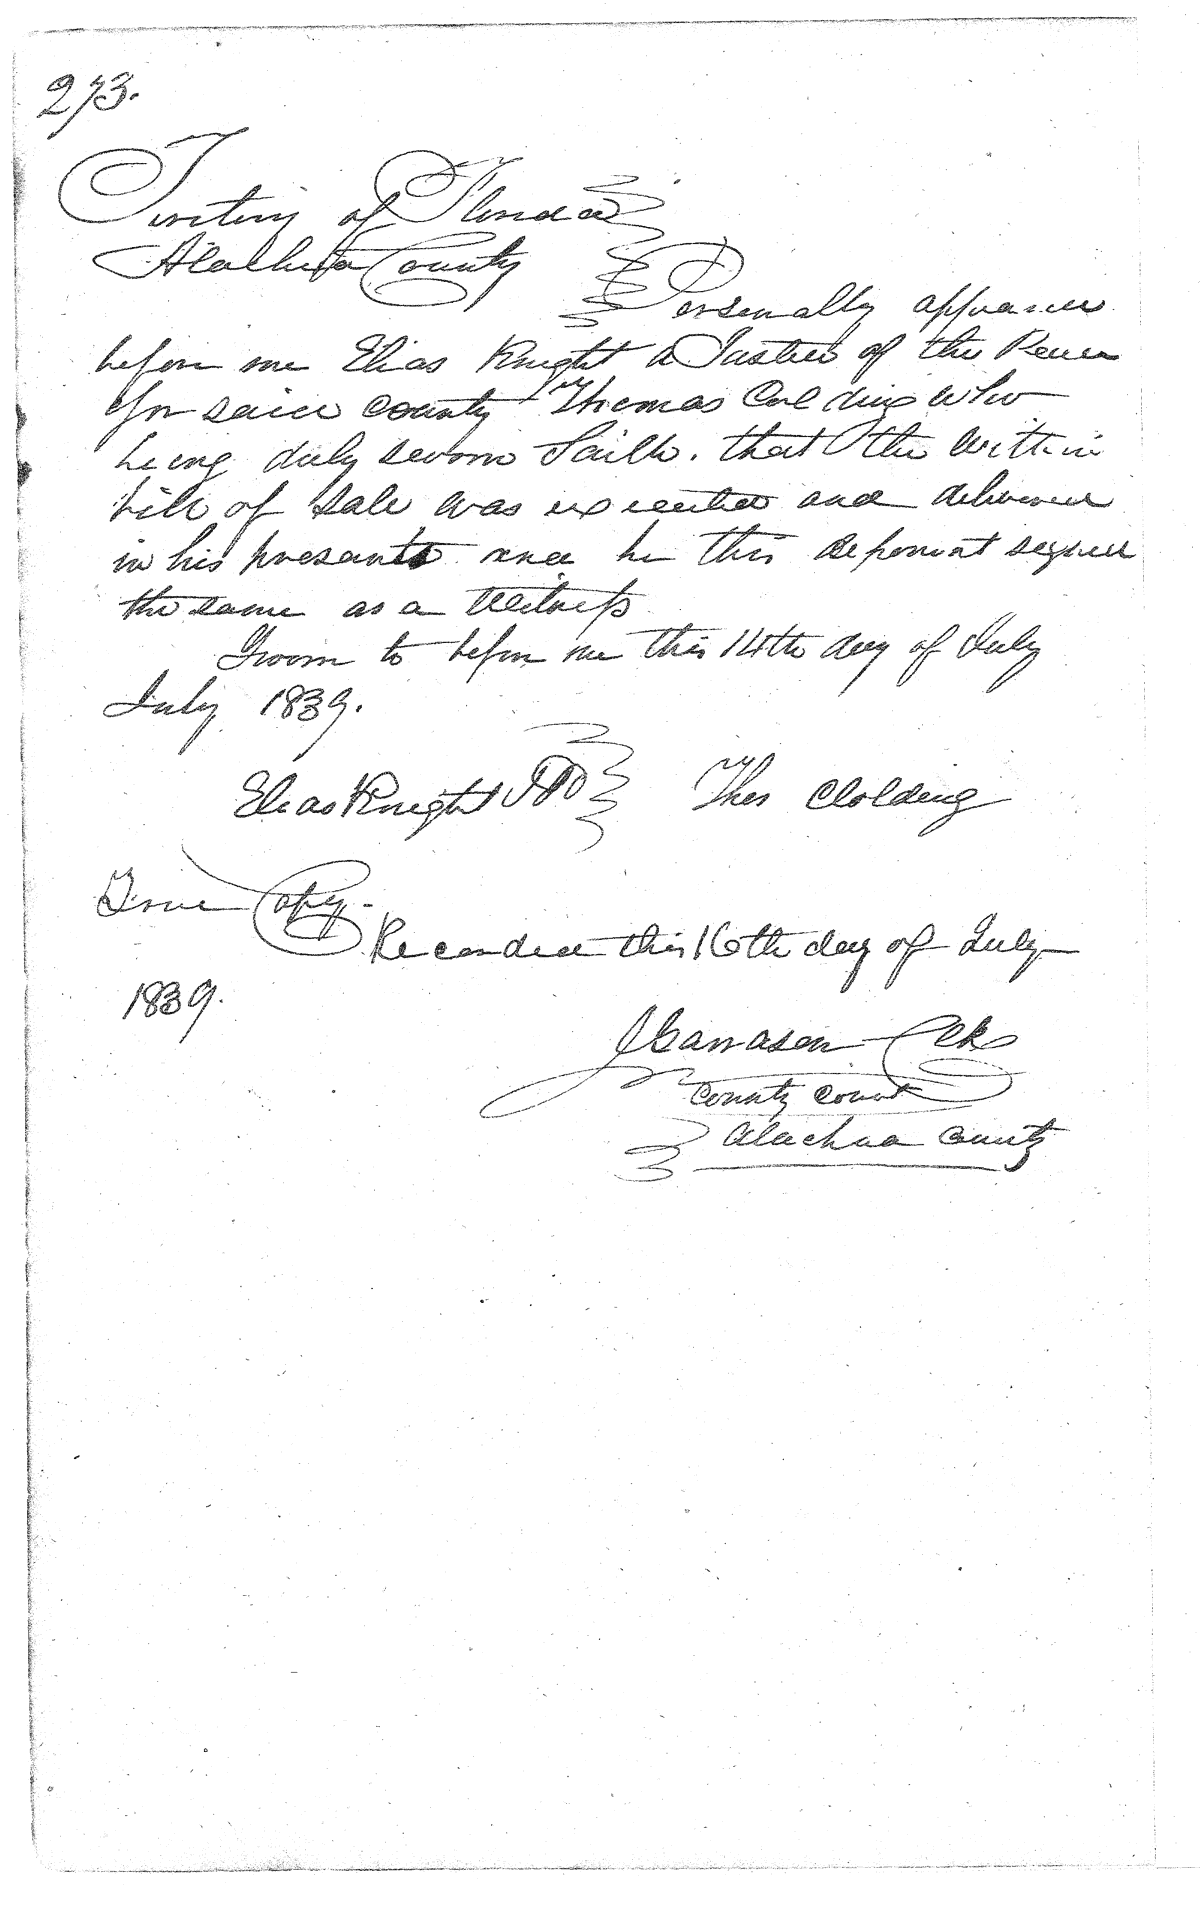 273.
Territory of Florida
Alachua County
Personally appeared
before me Elias Knight a Justice of the Peace
for said county Thomas Colding who
being duly sworn Saith. that the within
bill of Sale was executed and delivered
in his presants and he this deponent signed
the same as a Witness
Sworn to before me this 14th day of July
July 1839.
Elias Knight JP Thos Colding
True Copy.
Recorded this 16th day of July
1839.
Clk
County Court
Alachua County